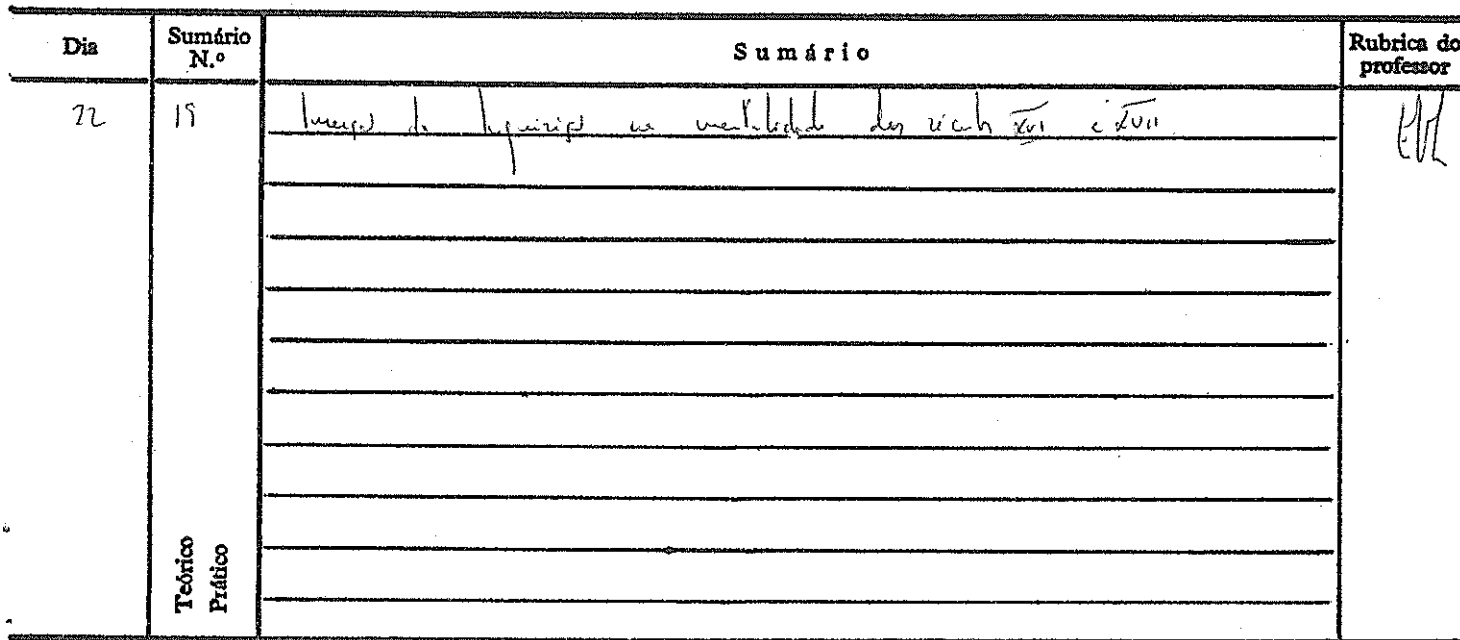 Dia
Sumário N.º
Sumário
Rubrica do professor
22
19
da Inquisição na mentalidade dos séculos XVI e XVII
Teórico
Prático